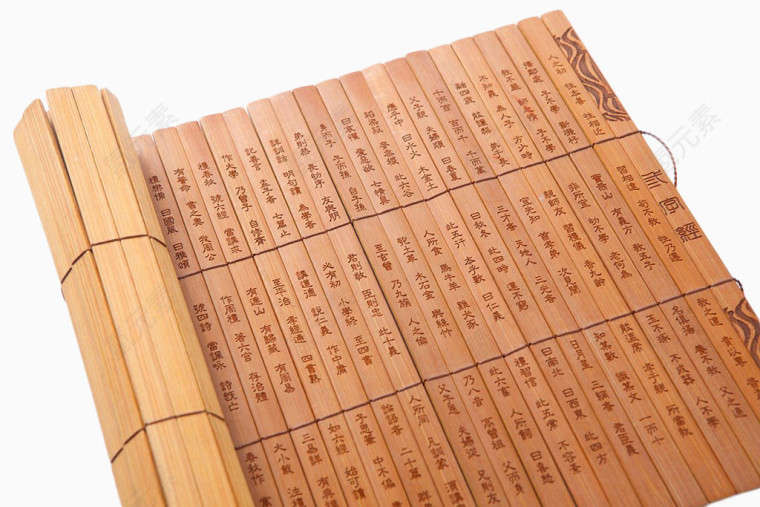 三字經
人之初 性本善 性相近
習相遠 苟不教 性乃遷
教之道 貴以專
擇鄰處 子不學 斷機杼
竇燕山 有義方 教五子
名俱揚 養不教 父之過
教不嚴 師之惰 子不學
非所宜 幼不學 老何為
玉不琢 不成器 人不學
不知義 為人子 方少時
親師友 習禮儀 香九齡
能溫席 孝于親 所當執
融四歲 能讓梨 弟于長
宜先知 首孝弟 次見聞
知某數 識某文 一而十
十而百 百而千 千而萬
三才者 天地人 三光者
日月星 三綱者 君臣義
父子親 夫婦順 曰春夏
曰秋冬 此四時 運不窮
曰南北 曰西東 此四方
應乎中 曰水火 木金土
此五行 本乎數 曰仁義
禮智信 此五常 不容紊
稻粱菽 麥黍稷 此六谷
人所食 馬牛羊 雞犬豕
此六畜 人所飼 曰喜怒
曰哀懼 愛惡欲 七情具
匏土革 木石金 與絲竹
乃八音 高曾祖 父而身
身而子 子而孫 自子孫
至玄曾 乃九族 人之倫
父子恩 夫婦從 兄則友
弟則恭 長幼序 友與朋
君則敬 臣則忠 此十義
人所同 凡訓蒙 須講
詳訓詁 明句讀 為學者
必有初 小學終 至四書
論語者 二十篇 群
記善言 孟子者 七篇止
講道德 說仁義 作中庸
子思筆 中不偏
作大學 乃曾子 自修齊
至平治 孝經通 四書熟
如六經 始可讀
禮春秋 號六經 當講求
有連山 有歸藏 有周易
三易詳 有典
有誓命 書之奧 我周公
作周禮 著六官 存治體
大小戴 注禮
禮樂備 曰國風 曰雅頌
號四詩 當諷咏 詩既亡
春秋作